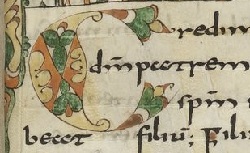 Credim
dm patrem
spm
becet filiu; Fili